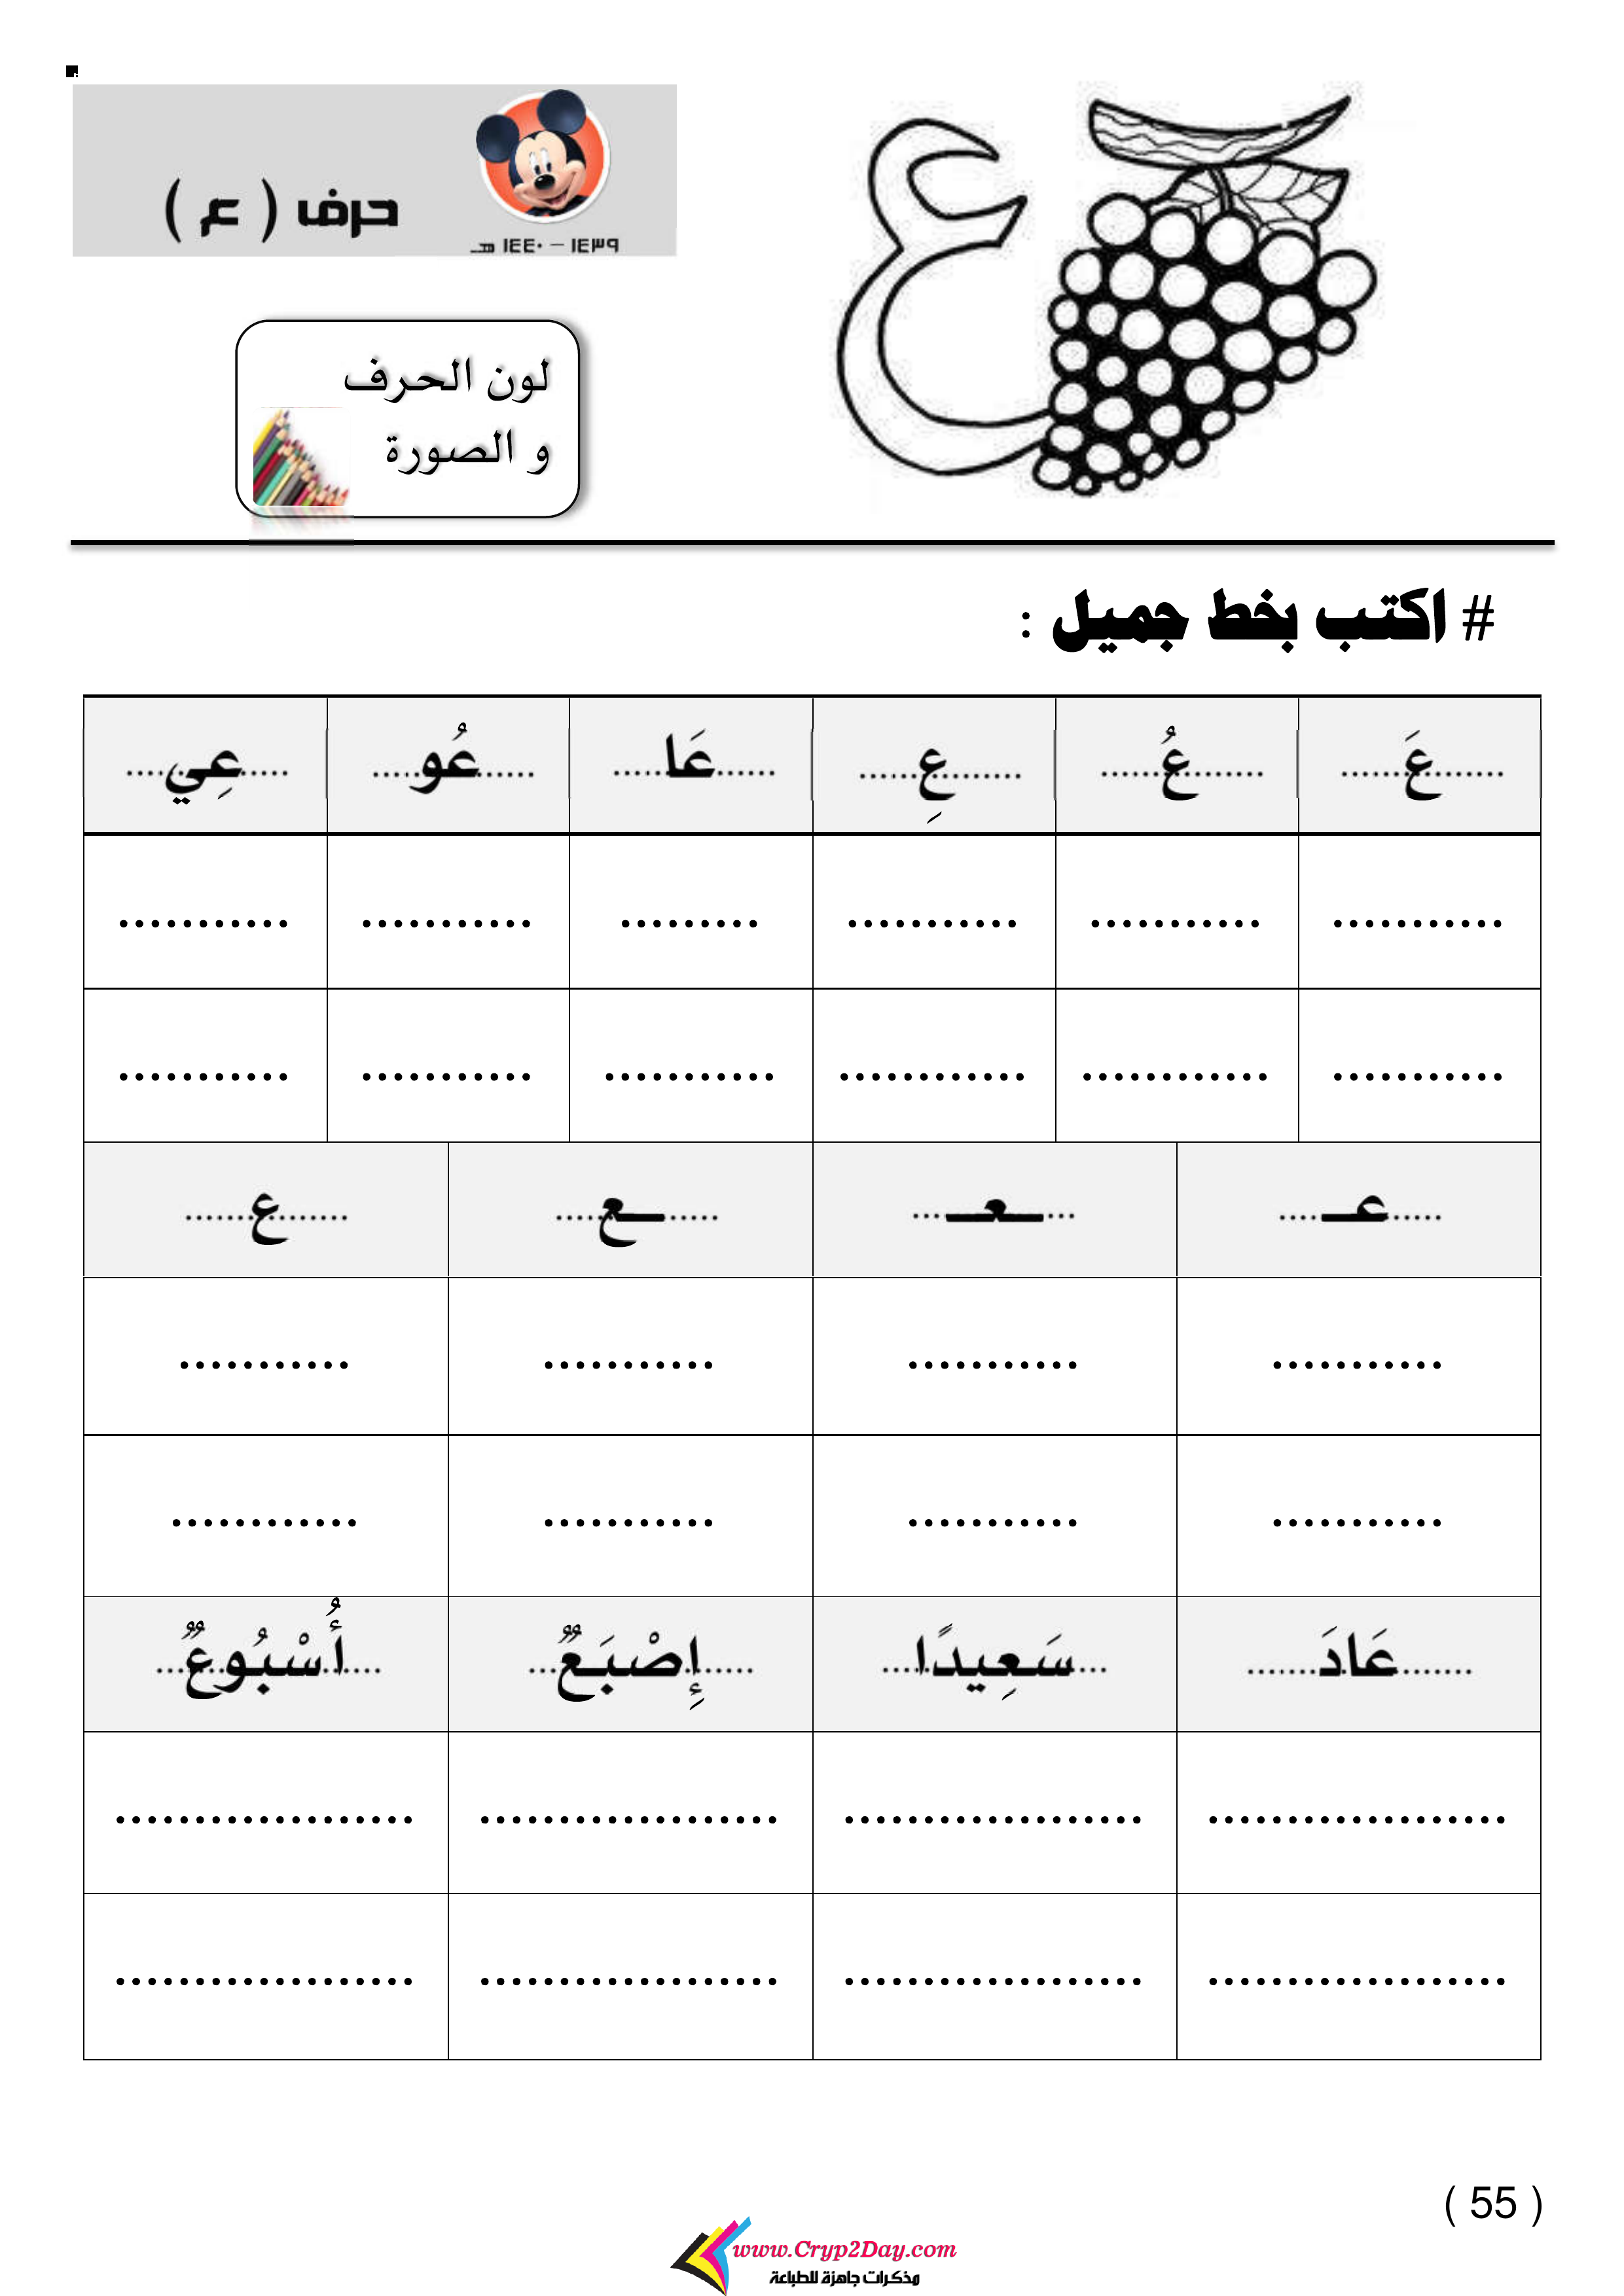 حرف ( ع )
١٤٣٩ – ١٤٤٠ هـ
لون الحرف
و الصورة
# اكتب بخط جميل :
......عَ........ ......عُ........ ......عِ........ .....عَا...... .....عُو...... ....عِي.....
........... ........... ........... ......... ........... ...........
........... ............ ............ ........... ........... ...........
....عـ..... ...ـعـ... ....ـع..... .......ع.......
........... ........... ........... ...........
........... ........... ........... ............
.......عَادَ....... ....سَعِيدًا... ...إِصْبَعٌ...... ...أُسْبُوعٌ....
................... ................... ................... ...................
................... ................... ................... ...................
( 55 )
www.Cryp2Day.com
مذكرات جاهزة للطباعة